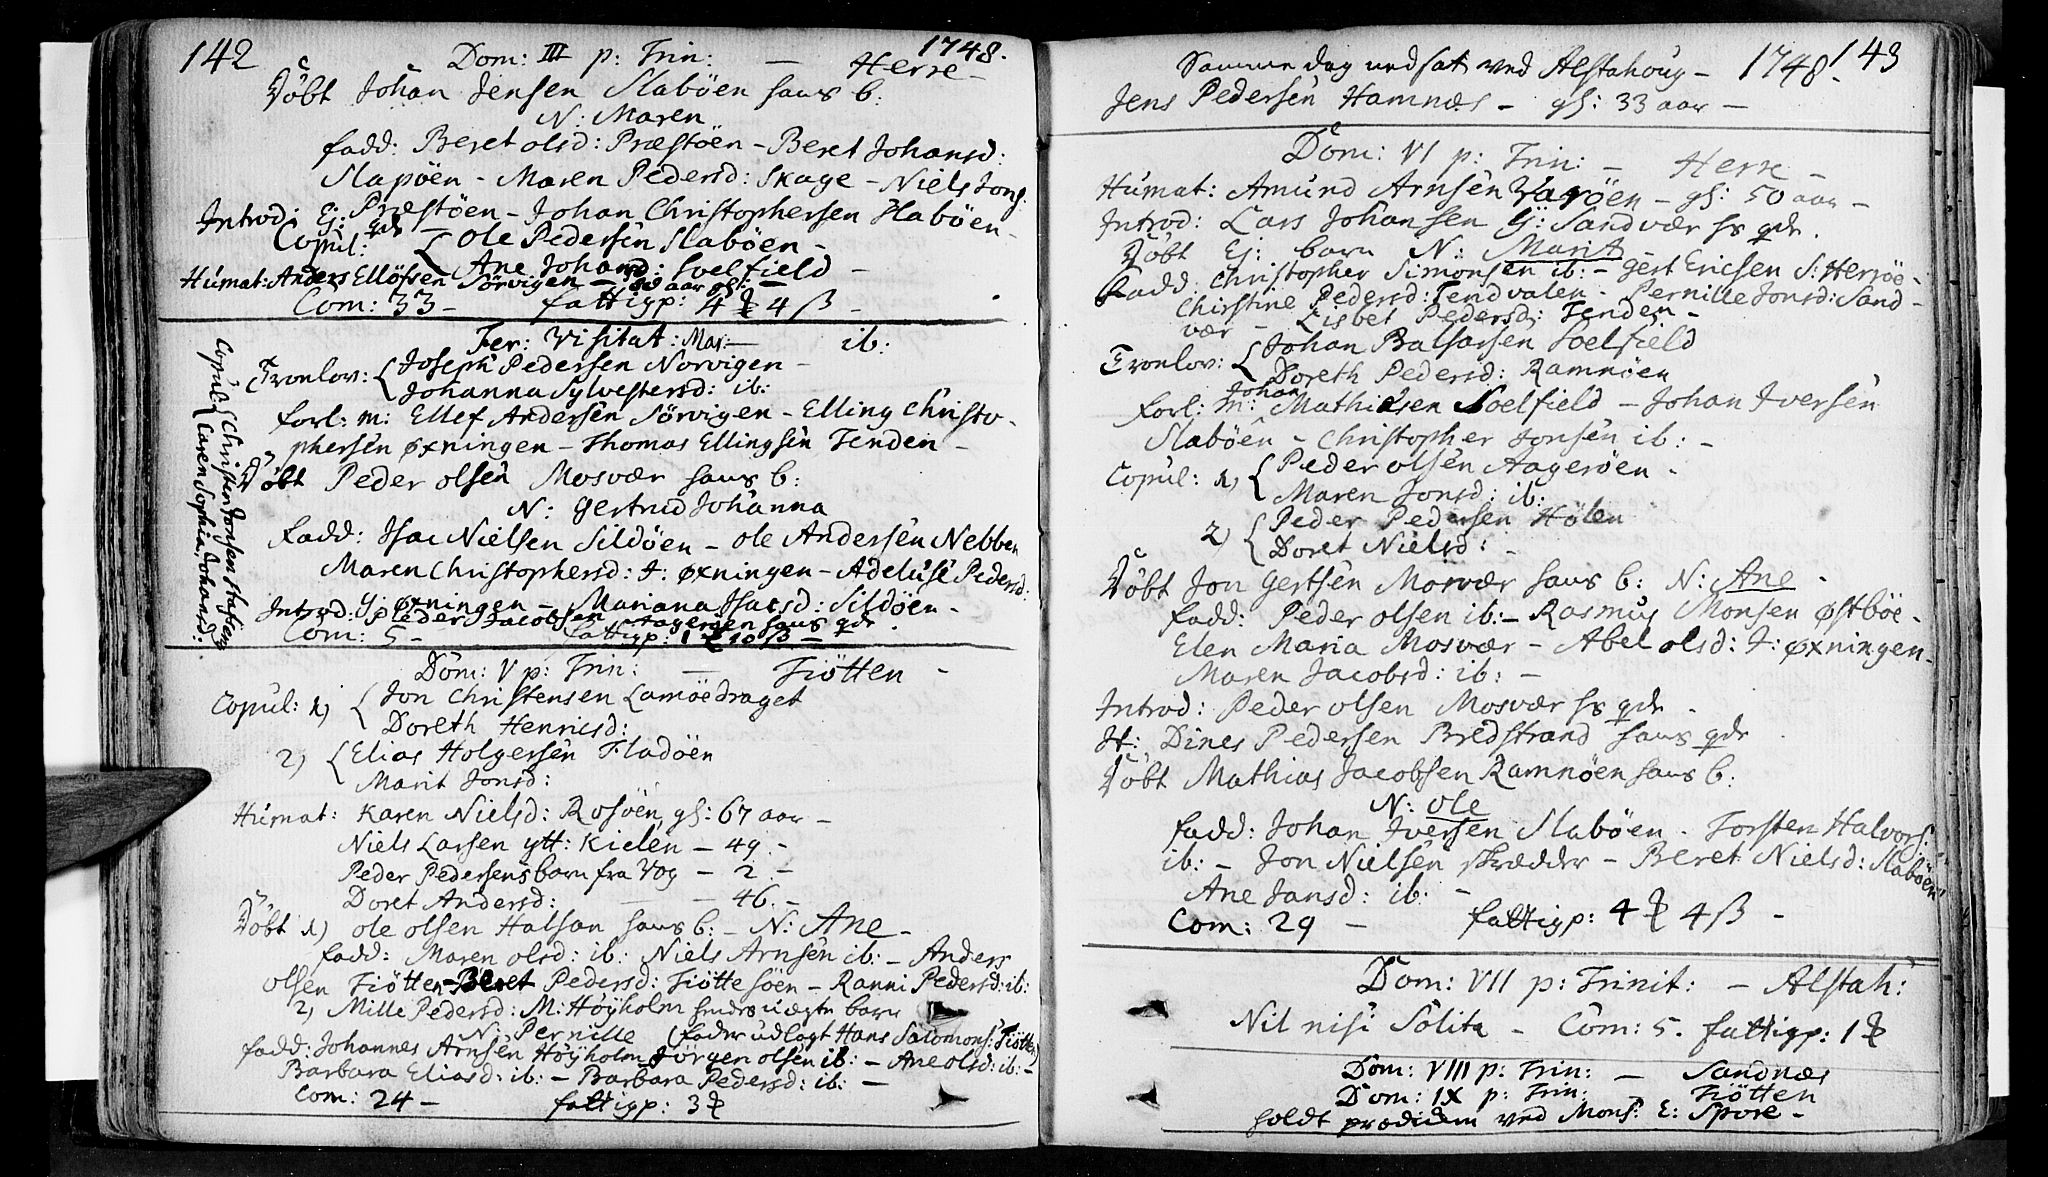 142
1748.
Dom: III p: Trin: — Herre —
Döbt Johan Jensen Slaböen hans b:
N: Maren
fadd: Beret olsd: Præstöen - Beret Johansd:
Slapöen - Maren Pedersd: Skage - Niels Jons:
Præstöen - Johan Christophersen Slaböen -
Introd: Ej: qdr
Copul: { Ole Pedersen Slaböen -
Ane Johansd: Soelfield -
Humat: Anders Ellöfsen Sörvigen — aar gl: —
Com: 33 - fattigp: 4 ß -
Fer: Visitat: Mar: — ib:
Tronlov: { Joseph Pedersen Norvigen -
Johanna Sylvestersd: ib:
forl: m: Ellef Andersen Sörvigen - Elling Christo-
phersen øxningen - Thomas Ellingsen Tenden -
Döbt Peder olsen Mosvær hans b:
N: Gertrud Johanna
fadd: Isac Nielsen Sildöen - ole Andersen Nebben
Maren Christophersd: I: øxningen - Adeluse Pedersd:
Y: øxningen - Mariana Isacsd: Sildöen -
Introd: Peder Jacobsen hans qdr.
Com: 5 - fattigp: 1 10 ß —
Copul: { Christen Jonsen
Caren Sophia Johansd:
Dom: V p: Trin: — Tiötten -
Copul: 1) { Jon Christensen Lamöedraget
Doreth Henricsd:
2) { Elias Holgersen Fladöen
Marit Jonsd:
Humat: Karen Nielsd: Rosöen gl: 67 aar -
Niels Larsen ytt: Kielen - 49. -
Peder Pedersens barn fra Vog - 2. -
Doret Andersd: — 46. -
Döbt 1) ole olsen Halsan hans b: - N: Ane -
fadd: Maren olsd: ib: Niels Arnsen ib: - Anders
olsen Tiötten - Beret Pedersd: Tiöttesöen - Ranni Pedersd: ib:
2) Mille Pedersd: M: Höyholm uægte barn
N: Pernille (fader udlagt Hans Salomons: Tiötten)
fadd: Johannes Arnsen Höyholm Jörgen olsen ib: - Ane olsd: ib: -
Barbara Eliasd: ib: - Barbara Pedersd: ib: —
Com: 24 - fattigp: 3
1748. 143
Samme dag nedsat ved Alstahoug -
Jens Pedersen Hamnæs - gl: 33 aar —
Dom: VI p: Trin: — Herre -
Humat: Amund Arnsen - gl: 50 aar -
Introd: Lars Johansen Y: Sandvær hs qdr.
Döbt Ej: barn N: Marit
Fadd: Christopher Simonsen ib: - Gert Ericsen S: Herröe -
Christine Pedersd: Tendvalen - Pernille Jonsd: Sand-
vær - Lisbet Pedersd: Tenden -
Tronlov: { Johan Balsarsen Soelfield
Doreth Pedersd: Ramnöen
forl: m: Johan Mathiesen Soelfield - Johan Iversen
Slaböen - Christopher Jonsen ib: -
Copul: 1) { Peder olsen Aageröen -
Maren Jonsd: ib:
2) { Peder Pedersen Holen
Doret Nielsd: -
Döbt Jon Gertsen Mosvær hans b: N: Ane -
fadd: Peder olsen ib: - Rasmus Monsen Østböe -
Elen Maria Mosvær - Abel olsd: I: øxningen -
Maren Jacobsd: ib: -
Introd: Peder olsen Mosvær hs qdr -
It: Dines Pedersen Bredstrand hans qdr
Döbt Mathias Jacobsen Ramnöen hans b:
N: ole
fadd: Johan Iversen Slaböen - Torsten Halvors:
ib: - Jon Nielsen skrædder - Beret Nielsd: Slaböen
Ane Jansd: ib: -
Com: 29 - fattigp: 4 4 ß -
Dom: VII p: Trinit: - Alstah:
Nil nisi Solita - Com: 5. fattigp: 1
Dom: VIII p: Trin: — Sandnæs
Dom: IX p: Trin: — Tiötten
holdt prædiken ved Mons: E: Spore -